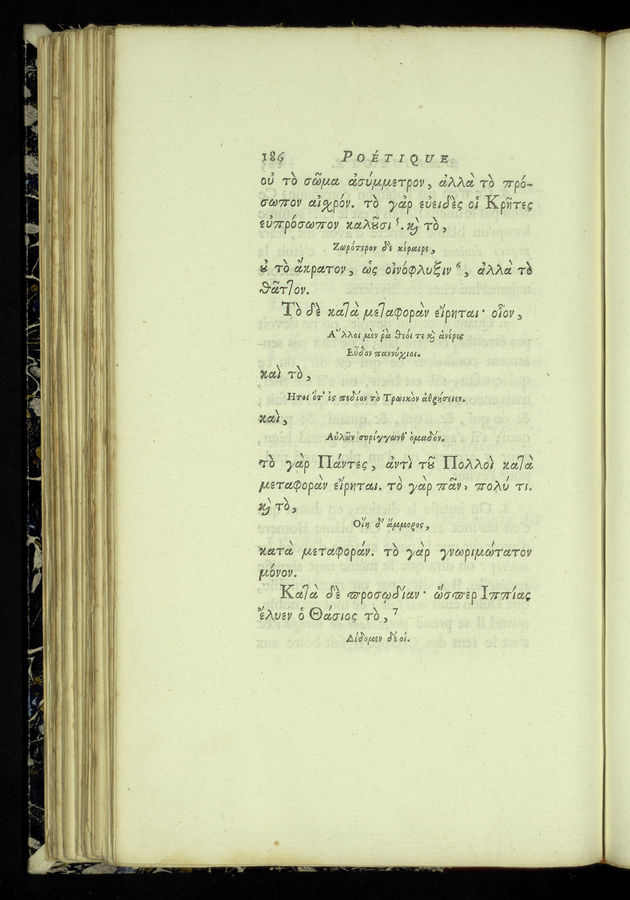 186 POÉTIQUE.
οὐ τὸ σῶμα ἀσύμμετρον, ἀλλὰ τὸ πρό-
σωπον αἰχρόν. τὸ γὰρ εὐειδὲς οἱ Κρῆτες
εὐπρόσωπον καλοῦσι 5. καὶ τὸ,
Ζωρότερον δὲ κέραιρε,
οὐ τὸ ἄκρατον, ὡς οἰνόφλυξιν 6, ἀλλὰ τὸ
θᾶττον.
Τὸ δὲ κατὰ μεταφορὰν εἴρηται· οἷον,
Ἄλλοι μὲν ῥὰ θεόι τε καὶ ἀνέρες
Εὗδον παννύχιοι.
καὶ τὸ,
Ητοι ὅτ' ἐς πεδίον τὸ Τρωικὸν ἀθρήσειεν.
καὶ,
Αὐλῶν συρίγγωνθ' ὁμαδόν.
τὸ γὰρ Πάντες, ἀντὶ τοῦ Πολλοὶ κατὰ
μεταφορὰν εἴρηται. τὸ γὰρ πᾶν, πολύ τι.
καὶ τὸ,
Οἴη δ' ἄμμορος,
κατὰ μεταφοράν. τὸ γὰρ γνωριμώτατον
μόνον.
Κατὰ δὲ προσῳδίαν· ὥσπερ Ιππίας
ἔλυεν ὁ Θάσιος τὸ, 7
Δίδομεν δέ οἱ.